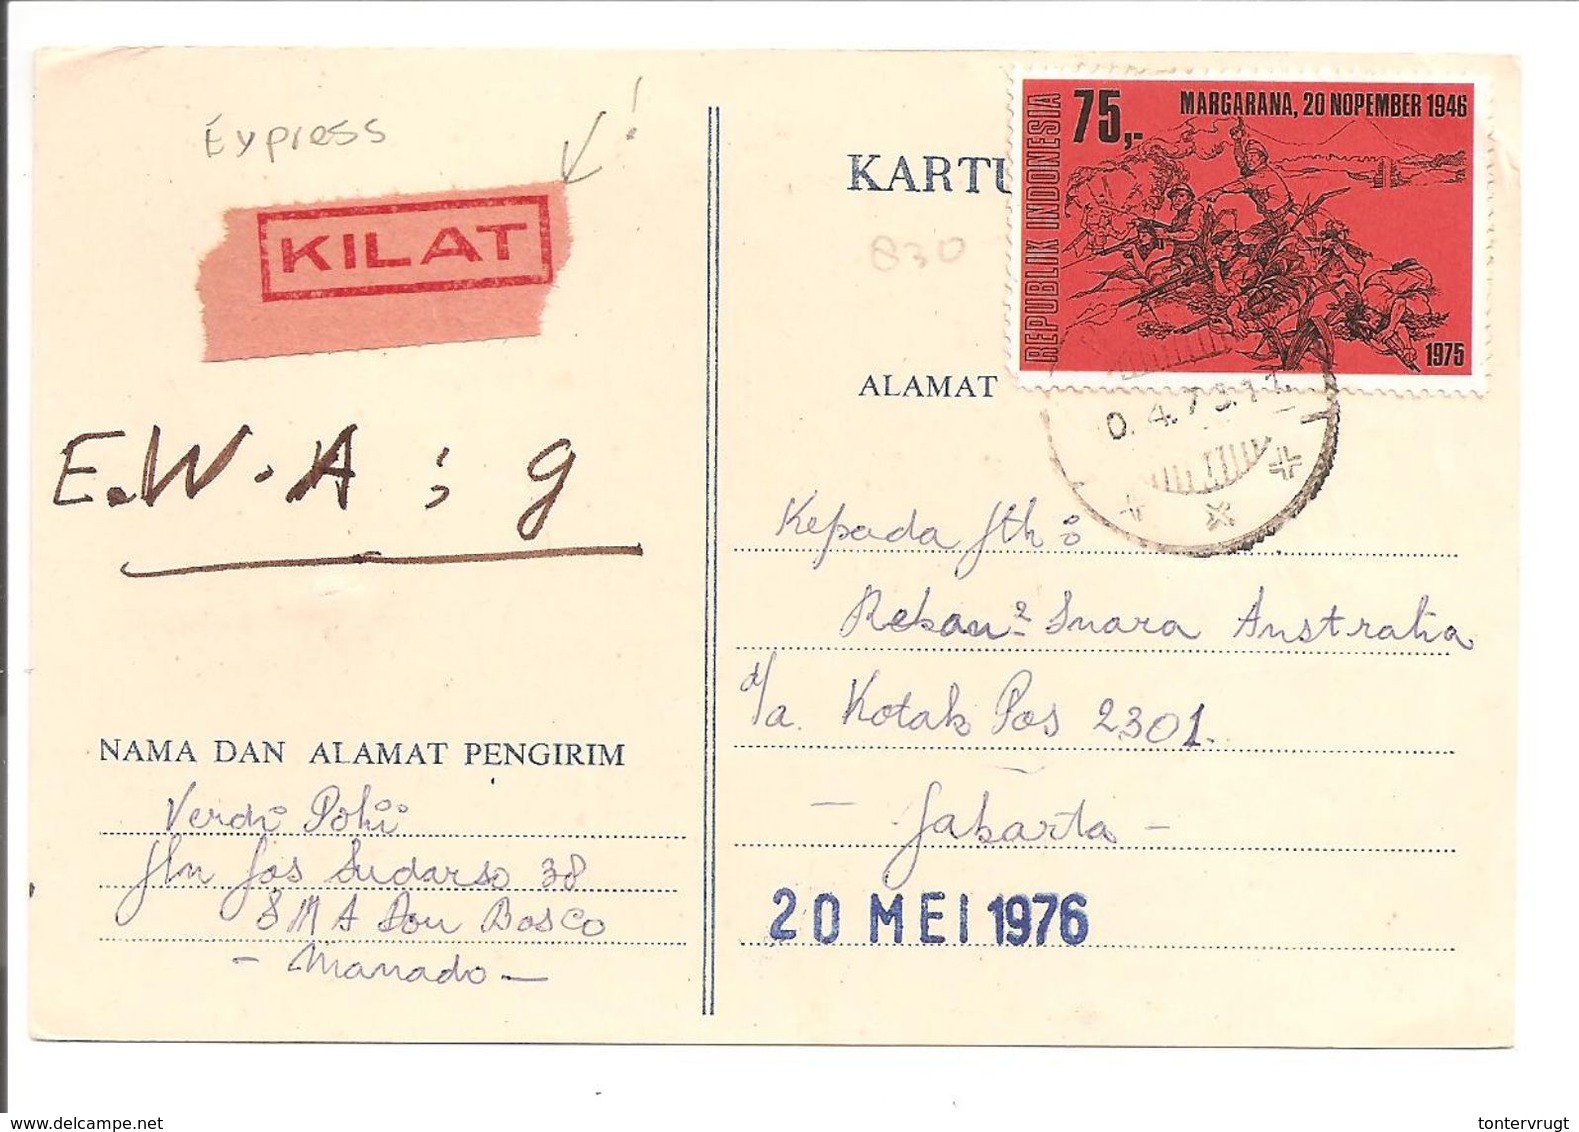 Express !
KILAT
E.W.A ; g
KARTU
830
ALAMAT
REPUBLIK INDONESIA
75,-
MARGARANA, 20 NOPEMBER 1946
1975
Kepada Jth :
Rekan² Suara Australia
d/a. Kotak Pos 2301.
- Jakarta -
20 MEI 1976
NAMA DAN ALAMAT PENGIRIM
Verdi Pohii
Jln Jos Sudarso 38
SMA Don Bosco
- Manado -
www.delcampe.net
tontervrugt